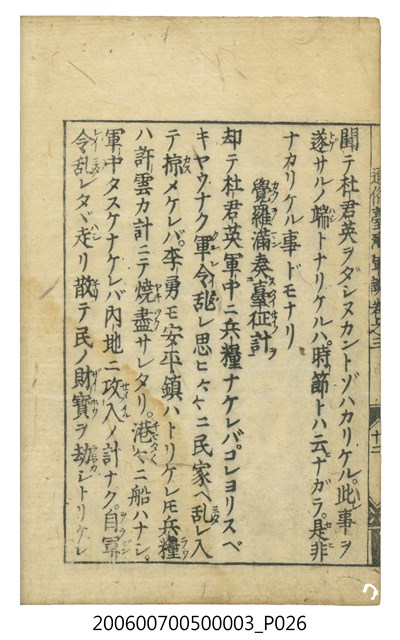 聞テ杜君英ヲダシヌカントゾハカリケル。此事ヲ
遂サルノ端トナリケルハ。時節トハ云ナガラ。是非
ナカリケル事ドモナリ
覺羅滿奏臺征計
却テ杜君英軍中ニ兵糧ナケレバ。コレヨリスベ
キヤウナク軍令乱レ思ヒ〱ニ民家ヘ乱レ入
テ掠メケレバ。李勇モ安平鎮ハトリケレ𪜈兵糧
ハ許雲カ計ニテ焼盡サレタリ。港〱ニ船ハナシ。
軍中タスケナケレバ內地ニ攻入ノ計ナク。自軍
令乱レタヾ走リ散テ民ノ財寶ヲ劫シトリケレ
卷之三
十二
200600700500003_P026